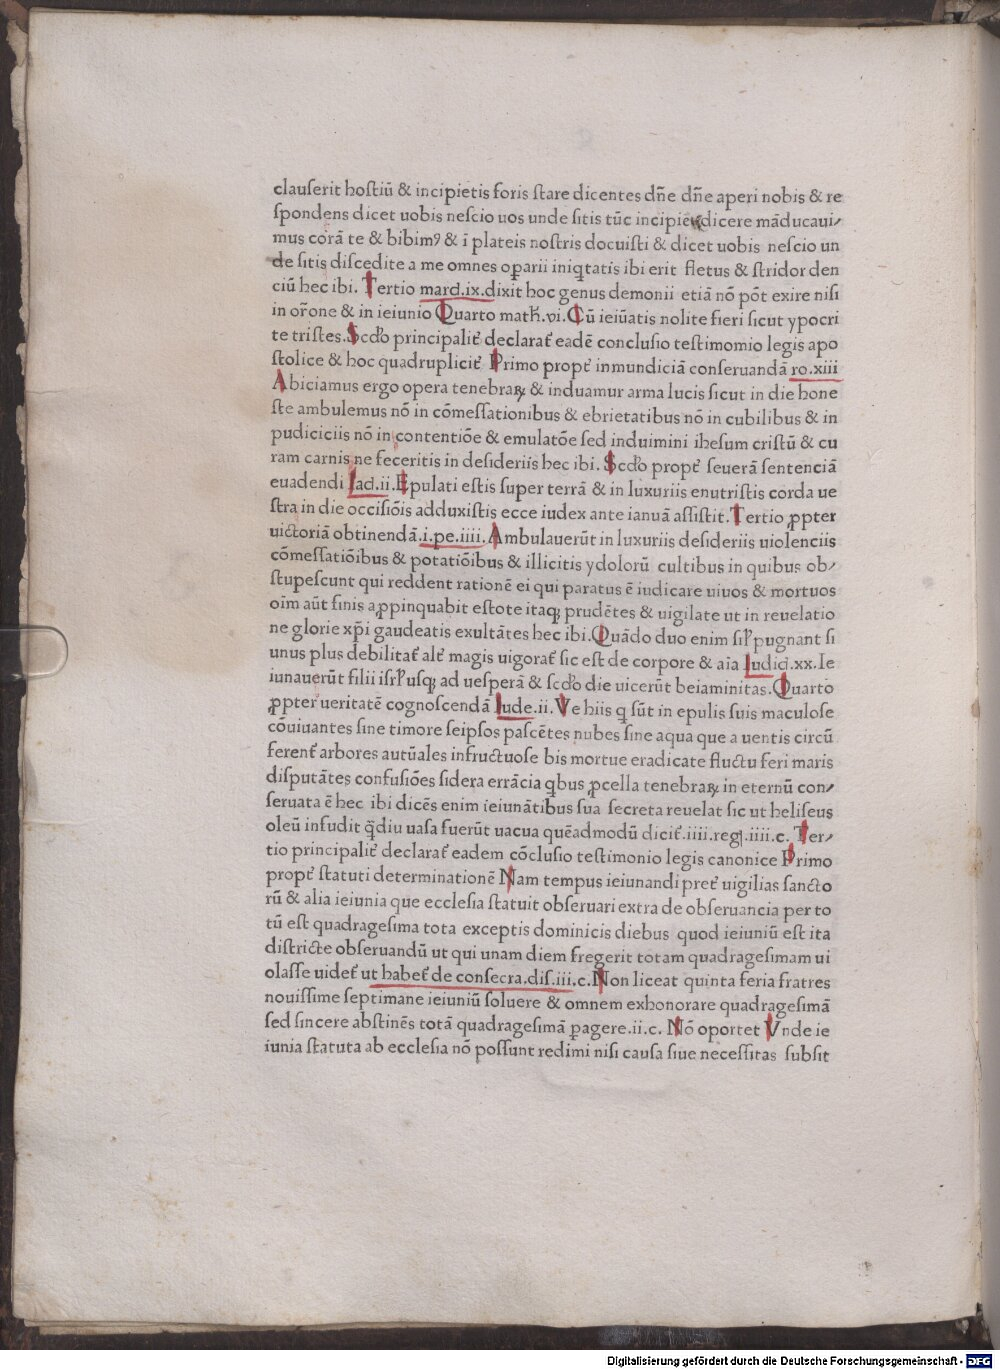 clauserit hostiū & incipietis foris stare dicentes dn̄e dn̄e aperi nobis & re
spondens dicet uobis nescio uos unde sitis tūc dicere māducaui⸗
mus corā te & bibimꝰ & ī plateis nostris docuisti & dicet uobis nescio un
de sitis discedite a me omnes oꝑarii iniqͥtatis ibi erit fletus & stridor den
ciū hec ibi. Tertio mard.ix.dixit hoc genus demonii etiā nō pōt exire nisi
in or̄one & in ieiunio Quarto matħ.vi.Cū ieiūatis nolite fieri sicut ypocri
te tristes.Scd̓o principalit᷑ declarat᷑ eadē conclusio testimomio legis apo
stolice & hoc quadruplicit᷑ Primo propt᷑ inmundiciā conseruandā ro.xiii
Abiciamus ergo opera tenebraꝝ & induamur arma lucis sicut in die hone
ste ambulemus nō in cōmessationibus & ebrietatibus nō in cubilibus & in
pudiciciis nō in contentiōe & emulatōe sed induimini ihesum cristū & cu
ram carnis ne feceritis in desideriis hec ibi. Scd̓o propt᷑ seuerā sentenciā
euadendi Iad.ii.Epulati estis super terrā & in luxuriis enutristis corda ue
stra in die occisiōis adduxistis ecce iudex ante ianuā assistit.Tertio ꝓpter
uictoriā obtinendā.i.pe.iiii.Ambulauerūt in luxuriis desideriis uiolenciis
cōmessatiōibus & potatiōibus & illicitis ydolorū cultibus in quibus ob⸗
stupescunt qui reddent rationē ei qui paratus ē iudicare uiuos & mortuos
oīm aūt finis aꝓpinquabit estote itaqꝫ prudētes & uigilate ut in reuelatio
ne glorie xp̄i gaudeatis exultātes hec ibi.Quādo duo enim sil̓ pugnant si
unus plus debilitat᷑ alt᷑ magis uigorat᷑ sic est de corpore & aīa Iudicͣ.xx.Ie
iunauerūt filii isrl̓ usqꝫ ad uesperā & scd̓o die uicerūt beiaminitas.Quarto
ꝓpter ueritatē cognoscendā Iude.ii.Ve hiis q̄ sūt in epulis suis maculose
cōuiuantes sine timore seipsos pascētes nubes sine aqua que a uentis circū
ferent᷑ arbores autūales infructuose bis mortue eradicate fluctu feri maris
disputātes confusiōes sidera errācia qͥbus ꝓcella tenebraꝝ in eternū con⸗
seruata ē hec ibi dicēs enim ieiunātibus sua secreta reuelat sic ut heliseus
oleū infudit qͣ̄diu uasa fuerūt uacua quēadmodū dicit᷑.iiii.reg.iiii.c. Ter⸗
tio principalit᷑ declarat᷑ eadem cōclusio testimonio legis canonice Primo
propt᷑ statuti determinationē Nam tempus ieiunandi pret᷑ uigilias sancto
rū & alia ieiunia que ecclesia statuit obseruari extra de obseruancia per to
tū est quadragesima tota exceptis dominicis diebus quod ieiuniū est ita
districte obseruandū ut qui unam diem fregerit totam quadragesimam ui
olasse uidet᷑ ut habet᷑ de consecra.dis.iii.c.Non liceat quinta feria fratres
nouissime septimane ieiuniū soluere & omnem exhonorare quadragesimā
sed sincere abstinēs totā quadragesimā ꝑagere.ii.c. Nō oportet Vnde ie
iunia statuta ab ecclesia nō possunt redimi nisi causa siue necessitas subsit
Digitalisierung gefördert durch die Deutsche Forschungsgemeinschaft - DFG